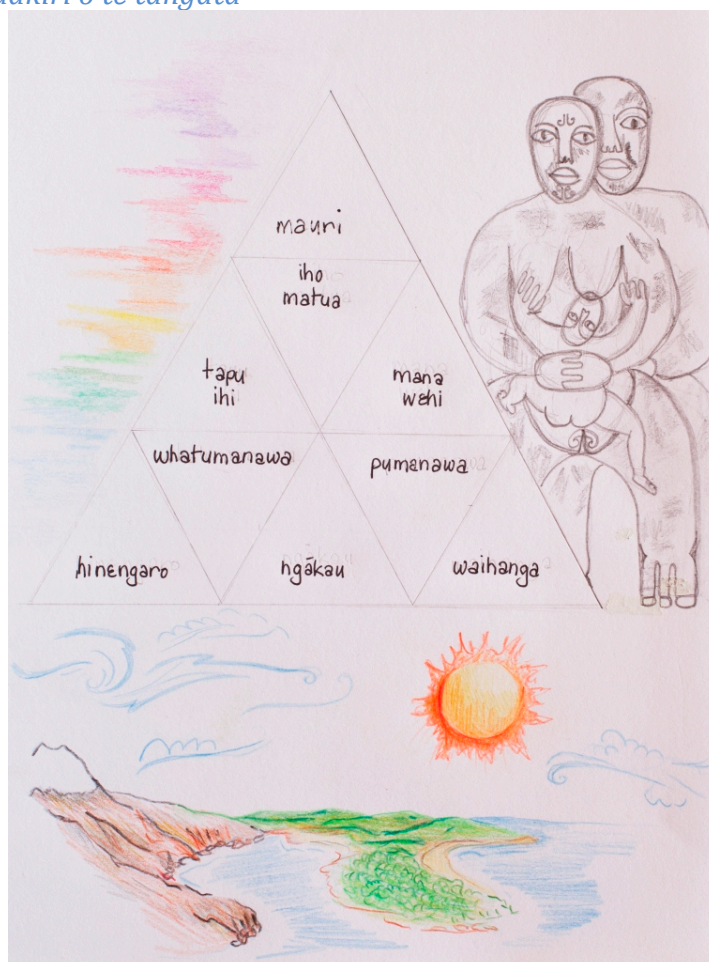 o te tangata
mauri
iho
matua
tapu
ihi
mana
wehi
whatumanawa
pumanawa
hinengaro
ngākau
waihanga